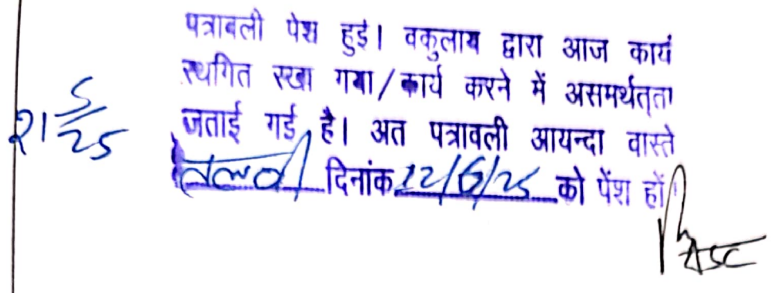 पत्राबली पेश हुई। वकुलाय द्वारा आज कार्य
स्थगित रखा गया/कार्य करने में असमर्थतता
21 5/25
जताई गई है। अत पत्रावली आयन्दा वास्ते
तलबी दिनांक 12/6/25 को पेंश हों।